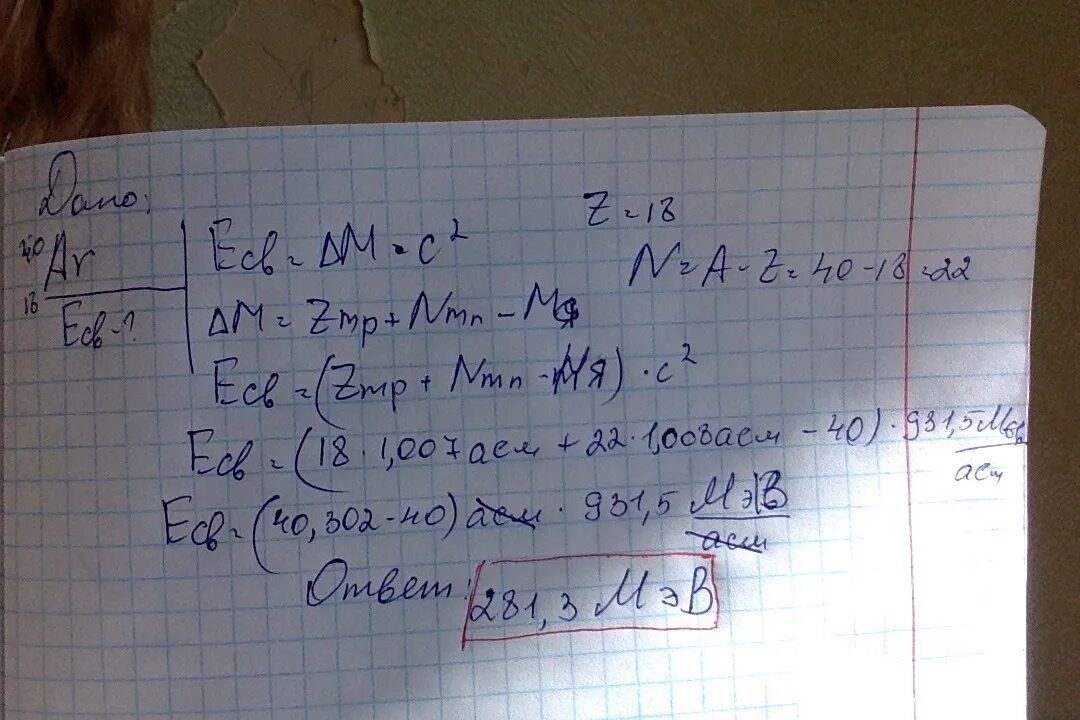 Дано:
40 Ar 18
Eсв - ?
Eсв = ΔM · c²
ΔM = Zmp + Nmn - Mя
Eсв = (Zmp + Nmn - Mя) · c²
Z = 18
N = A - Z = 40 - 18 = 22
Eсв = (18 · 1,007 аем + 22 · 1,008 аем - 40) · 931,5 МэВ/аем
Eсв = (40,302 - 40) аем · 931,5 МэВ/аем
Ответ: 281,3 МэВ